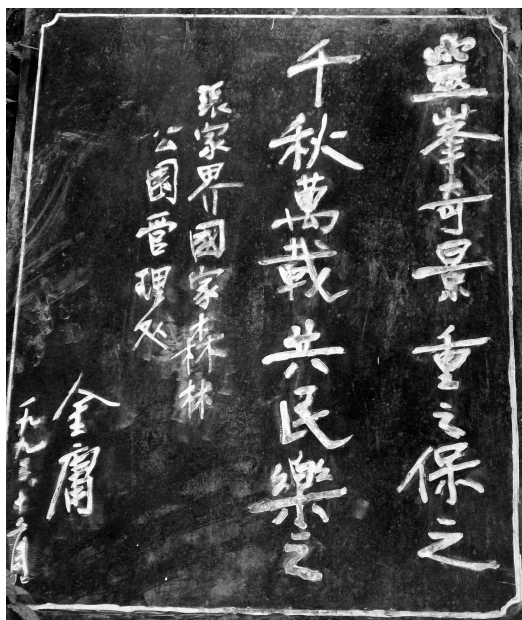 靈峯奇景 重之保之
千秋萬載 共民樂之
張家界國家森林
公園管理处
金庸
一九九三、十二月